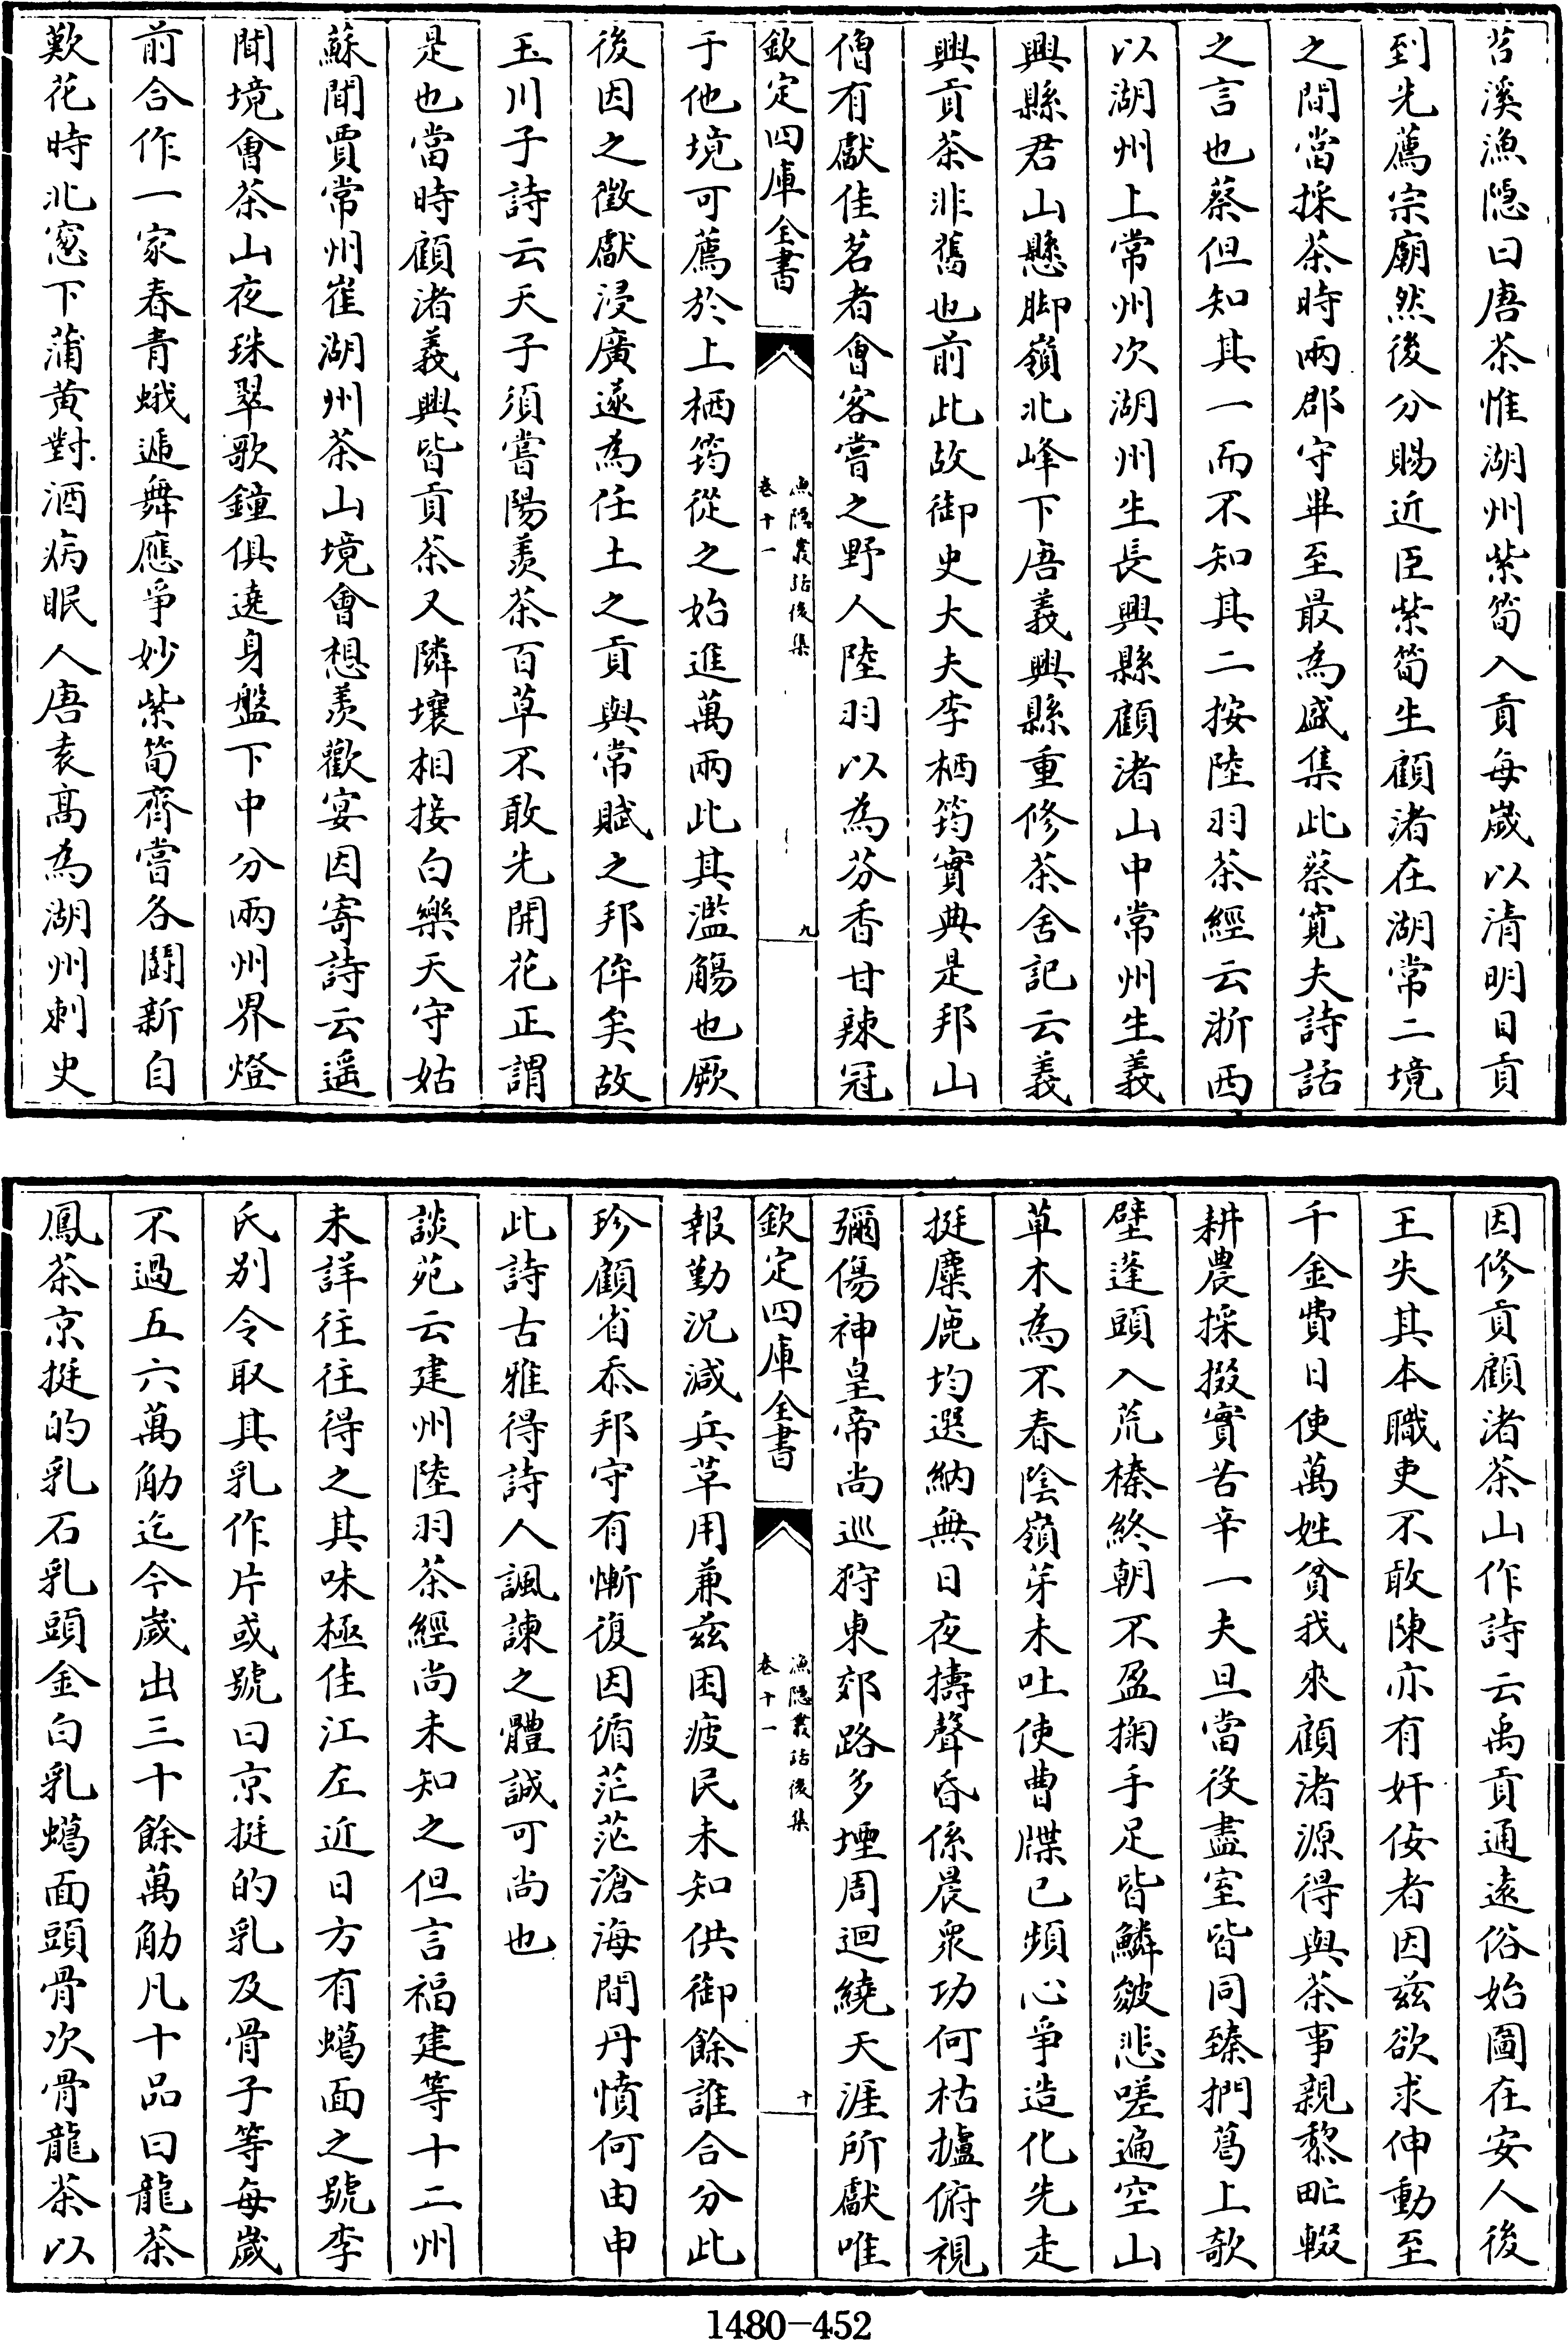 苕溪漁隱曰唐茶惟湖州紫筍入貢每歲以清明日貢
到先薦宗廟然後分賜近臣紫筍生顧渚在湖常二境
之間當採茶時兩郡守畢至最為盛集此蔡寬夫詩話
之言也蔡但知其一而不知其二按陸羽茶經云浙西
以湖州上常州次湖州生長興縣顧渚山中常州生義
興縣君山懸脚嶺北峰下唐義興縣重修茶舍記云義
興貢茶非舊也前此故御史大夫李栖筠實典是邦山
僧有獻佳茗者會客嘗之野人陸羽以為芬香甘辣冠
欽定四庫全書
漁隱叢話後集
卷十一
九
于他境可薦於上栖筠從之始進萬兩此其濫觴也厥
後因之徵獻浸廣遂為任土之貢與常賦之邦侔矣故
玉川子詩云天子須嘗陽羨茶百草不敢先開花正謂
是也當時顧渚義興皆貢茶又隣壤相接白樂天守姑
蘇聞賈常州崔湖州茶山境會想羨歡宴因寄詩云遥
聞境會茶山夜珠翠歌鐘俱遶身盤下中分兩州界燈
前合作一家春青蛾遞舞應爭妙紫筍齊嘗各鬭新自
歎花時北窓下蒲黄對酒病眠人唐袁高為湖州刺史
因修貢顧渚茶山作詩云禹貢通遠俗始圖在安人後
王失其本職吏不敢陳亦有奸佞者因兹欲求伸動至
千金費日使萬姓貧我來顧渚源得與茶事親黎甿輟
耕農採掇實苦辛一夫旦當役盡室皆同臻捫葛上欹
壁蓬頭入荒榛終朝不盈掬手足皆鱗皴悲嗟遍空山
草木為不春陰嶺芽未吐使曹牒已頻心爭造化先走
挺麋鹿均選納無日夜擣聲昏係晨衆功何枯摣俯視
彌傷神皇帝尚巡狩東郊路多堙周迴繞天涯所獻唯
欽定四庫全書
漁隱叢話後集
卷十一
十
報勤況減兵革用兼兹困疲民未知供御餘誰合分此
珍顧省忝邦守有慚復因循茫茫滄海間丹憤何由申
此詩古雅得詩人諷諫之體誠可尚也
談苑云建州陸羽茶經尚未知之但言福建等十二州
未詳往往得之其味極佳江左近日方有蠟面之號李
氏别令取其乳作片或號曰京挺的乳及骨子等每歲
不過五六萬觔迄今歲出三十餘萬觔凡十品曰龍茶
鳳茶京挺的乳石乳頭金白乳蠟面頭骨次骨龍茶以
1480-452